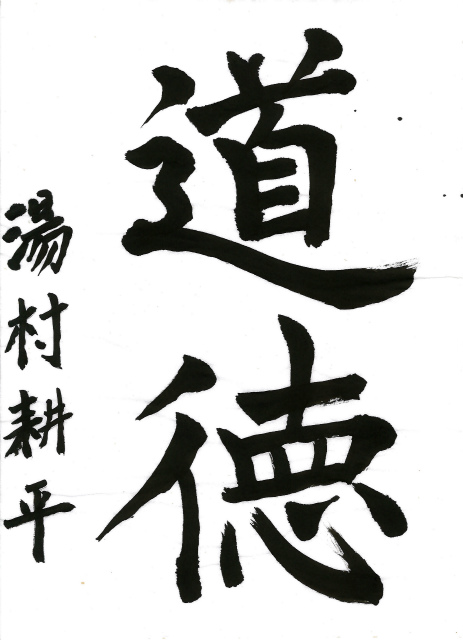 道徳
湯村耕平